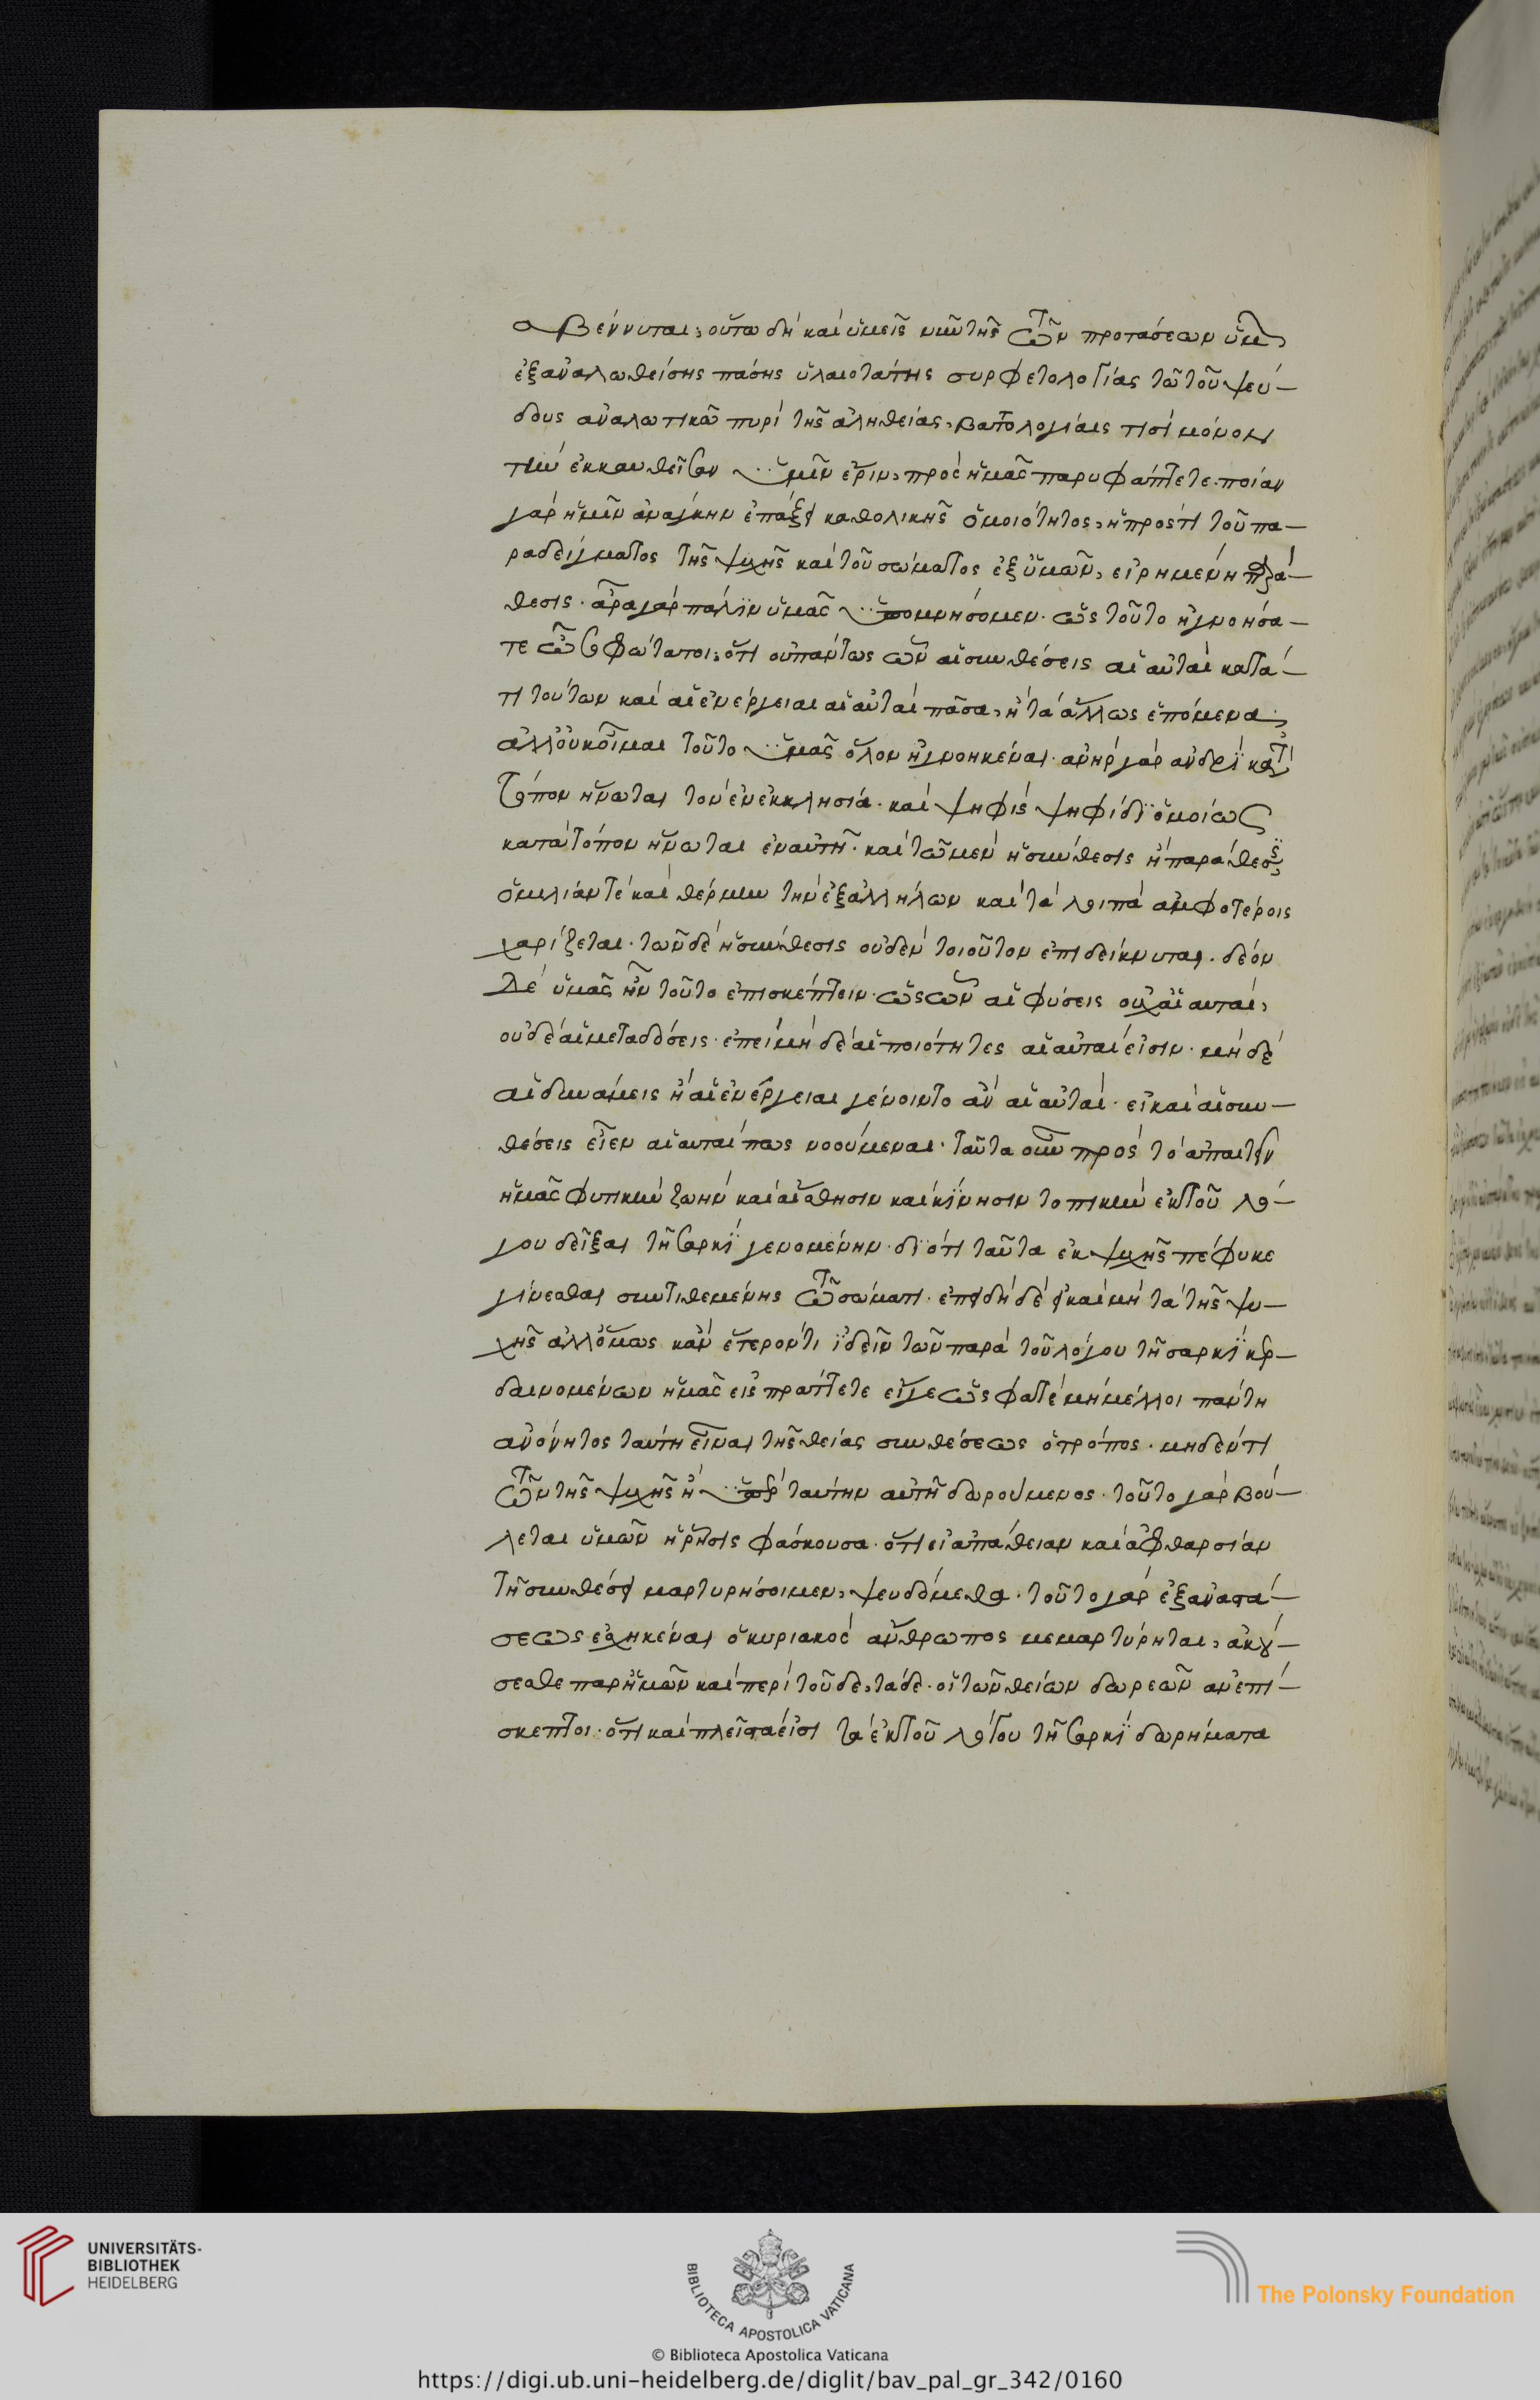 σβέννυται, οὕτω δὴ καὶ ὑμεῖς νῦν τῆς τῶν προτάσεων ὑμῶν
ἐξαναλωθείσης πάσης ὑλαιοτάτης συρφετολογίας τῶ τοῦ ψεύ-
δους ἀναλωτικῶ πυρὶ τῆς ἀληθείας, βαττολογίαις τισὶ μόνον
τὴν ἐκκαυθεῖσαν ὑμῖν ἔριν, πρὸς ἡμᾶς παρυφάπτετε. ποίαν
γὰρ ἡμῖν ἀνάγκην ἐπάξει καθολικῆς ὁμοιότητος, ἡ πρός τι τοῦ πα-
ραδείγματος τῆς ψυχῆς καὶ τοῦ σώματος ἐξ ὑμῶν, εἰρημένη παρά-
θεσις. ἆρα γὰρ πάλιν ὑμᾶς ὑπομνήσομεν. ὡς τοῦτο ἠγνοήσα-
τε ὦ σοφώτατοι, ὅτι οὐ πάντως ὧν αἱ συνθέσεις αἱ αὐταὶ κατά
τι τούτων καὶ αἱ ἐνέργειαι αἱ αὐταὶ πᾶσαι, ἢ τὰ ἄλλως ἑπόμενα,
ἀλλ' οὐκ οἶμαι τοῦτο ὑμᾶς ὅλον ἠγνοηκέναι. ἀνὴρ γὰρ ἀνδρὶ κατὰ
τόπον ἥνωται τὸν ἐν ἐκκλησία. καὶ ψηφὶς ψηφίδι ὁμοίως
κατὰ τόπον ἥνωται ἐν αὐτῆ. καὶ τῶ μὲν ἡ σύνθεσις ἢ παράθεσις
ὁμιλίαν τὲ καὶ θέρμην τὴν ἐξ ἀλλήλων καὶ τὰ λοιπὰ ἀμφοτέροις
χαρίζεται. τῶν δὲ ἡ σύνθεσις οὐδὲν τοιοῦτον ἐπιδείκνυται. δέον
δὲ ὑμᾶς ἦν τοῦτο ἐπισκέπτειν. ὡς ὧν αἱ φύσεις οὐχ αἱ αὐταὶ,
οὐδὲ αἱ μεταδόσεις. ἐπεὶ μὴ δὲ αἱ ποιότητες αἱ αὐταί εἰσιν. μὴ δὲ
αἱ δυνάμεις ἢ αἱ ἐνέργειαι γένοιντο ἂν αἱ αὐταὶ. εἰ καὶ αἱ συν-
θέσεις εἶεν αἱ αὐταί πως νοούμεναι. ταῦτα οὖν πρὸς τὸ ἀπαιτεῖν
ἡμᾶς φυτικὴν ζωὴν καὶ αἴσθησιν καὶ κίνησιν τοπικὴν ἐκ τοῦ λό-
γου δεῖξαι τῆ σαρκὶ γενομένην. διότι ταῦτα ἐκ ψυχῆς πέφυκε
γίνεσθαι συντιθεμένης τῶ σώματι. ἐπειδὴ δὲ εἰ καὶ μὴ τὰ τῆς ψυ-
χῆς ἀλλ' ὅμως κἂν ἕτερόν τι ἰδεῖν τῶν παρὰ τοῦ λόγου τῆ σαρκὶ κερ-
δαινομένων ἡμᾶς εἰσπράττετε εἴγε ὡς φατὲ μὴ μέλλοι πάντη
ἀνόνητος ταύτη εἶναι τῆς θείας συνθέσεως ὁ τρόπος. μηδέν τι
τῶν τῆς ψυχῆς ἢ ὑπὲρ ταύτην αὐτῆ δωρούμενος. τοῦτο γὰρ βού-
λεται ὑμῶν ἡ ῥῆσις φάσκουσα. ὅτι εἰ ἀπάθειαν καὶ ἀφθαρσίαν
τῆ συνθέσει μαρτυρήσοιμεν, ψευδόμεθα. τοῦτο γὰρ ἐξ ἀναστά-
σεως ἐσχηκέναι ὁ κυριακὸς ἄνθρωπος μεμαρτύρηται, ἀκού-
σεσθε παρ' ἡμῶν καὶ περὶ τοῦδε, τάδε. οἱ τῶν θείων δωρεῶν ἀνεπί-
σκεπτοι. ὅτι καὶ πλεῖστά εἰσι τὰ ἐκ τοῦ λόγου τῆ σαρκὶ δωρήματα
UNIVERSITÄTS-
BIBLIOTHEK
HEIDELBERG
BIBLIOTECA APOSTOLICA VATICANA
The Polonsky Foundation
© Biblioteca Apostolica Vaticana
https://digi.ub.uni-heidelberg.de/diglit/bav_pal_gr_342/0160